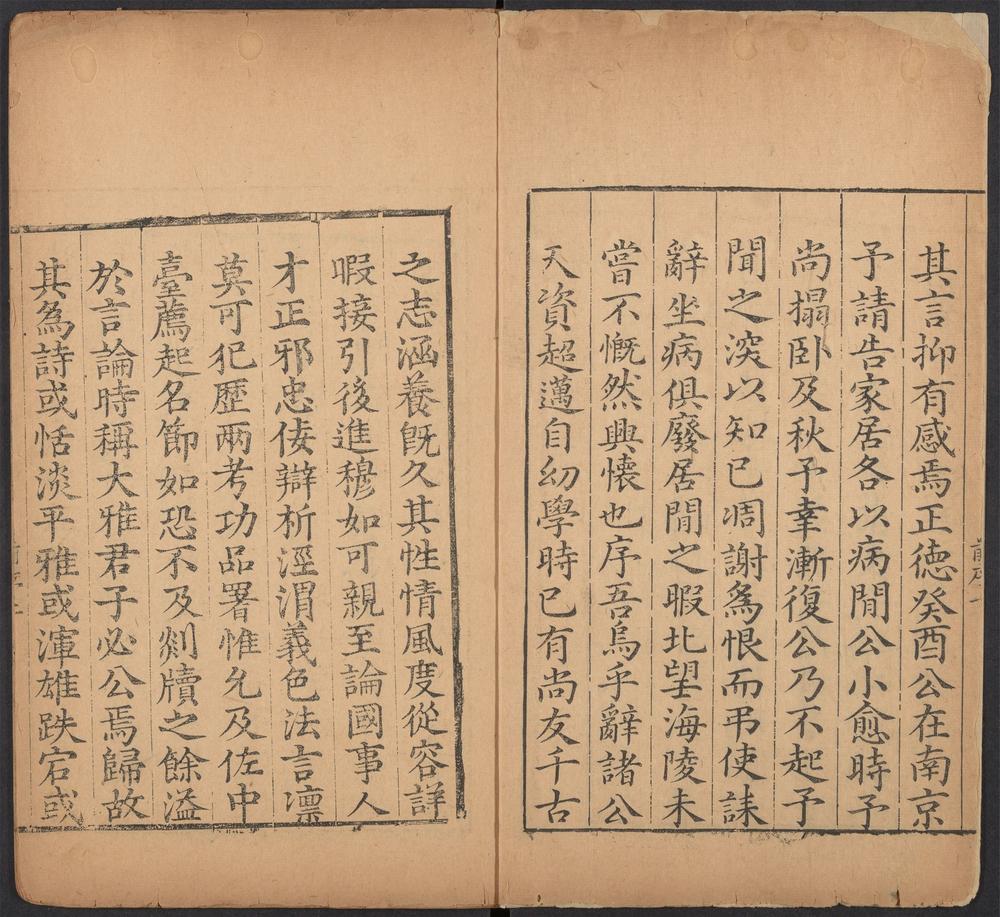 其言抑有感焉正德癸酉公在南京
予請告家居各以病閒公小愈時予
尚搨卧及秋予幸漸復公乃不起予
聞之深以知已凋謝爲恨而弔使誄
辭坐病俱廢居閒之暇北望海陵未
嘗不慨然興懷也序吾烏乎辭諸公
天資超邁自幼學時已有尚友千古
之志涵養旣久其性情風度從容詳
暇接引後進穆如可親至論國事人
才正邪忠倿辯析涇渭義色法言凛
莫可犯歷兩考功品署惟允及佐中
臺薦起名節如恐不及剡牘之餘溢
於言論時稱大雅君子必公焉歸故
其爲詩或恬淡平雅或渾雄跌宕或